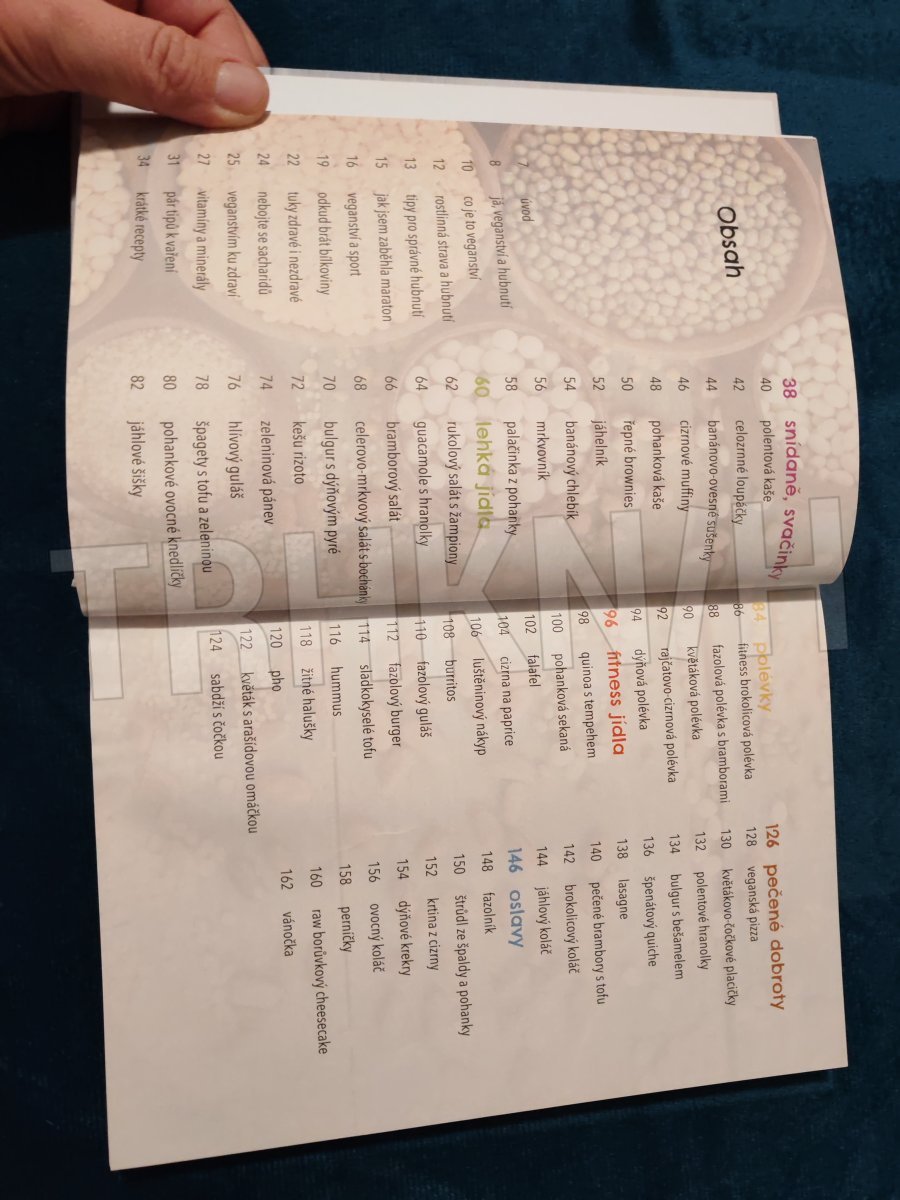 Obsah
7 úvod
8 já, veganství a hubnutí
10 co je to veganství
12 rostlinná strava a hubnutí
13 tipy pro správné hubnutí
15 jak jsem zaběhla maraton
16 veganství a sport
19 odkud brát bílkoviny
22 tuky zdravé i nezdravé
24 nebojte se sacharidů
25 veganstvím ku zdraví
27 vitamíny a minerály
31 pár tipů k vaření
34 krátké recepty
38 snídaně, svačinky
40 polentová kaše
42 celozrnné loupáčky
44 banánovo-ovesné sušenky
46 cizrnové muffiny
48 pohanková kaše
50 řepné brownies
52 jáhelník
54 banánový chlebík
56 mrkvovník
58 palačinka z pohanky
60 lehká jídla
62 rukolový salát s žampiony
64 guacamole s hranolky
66 bramborový salát
68 celerovo-mrkvový salát s bochánky
70 bulgur s dýňovým pyré
72 kešu rizoto
74 zeleninová pánev
76 hlívový guláš
78 špagety s tofu a zeleninou
80 pohankové ovocné knedlíčky
82 jáhlové šišky
84 polévky
86 fitness brokolicová polévka
88 fazolová polévka s bramborami
90 květáková polévka
92 rajčatovo-cizrnová polévka
94 dýňová polévka
96 fitness jídla
98 quinoa s tempehem
100 pohanková sekaná
102 falafel
104 cizrna na paprice
106 luštěninový nákyp
108 burritos
110 fazolový guláš
112 fazolový burger
114 sladkokyselé tofu
116 hummus
118 žitné halušky
120 pho
122 květák s arašídovou omáčkou
124 sabdží s čočkou
126 pečené dobroty
128 veganská pizza
130 květákovo-čočkové placičky
132 polentové hranolky
134 bulgur s bešamelem
136 špenátový quiche
138 lasagne
140 pečené brambory s tofu
142 brokolicový koláč
144 jáhlový koláč
146 oslavy
148 fazolník
150 štrúdl ze špaldy a pohanky
152 krtina z cizrny
154 dýňové krekry
156 ovocný koláč
158 perníčky
160 raw borůvkový cheesecake
162 vánočka
TRHKNIH